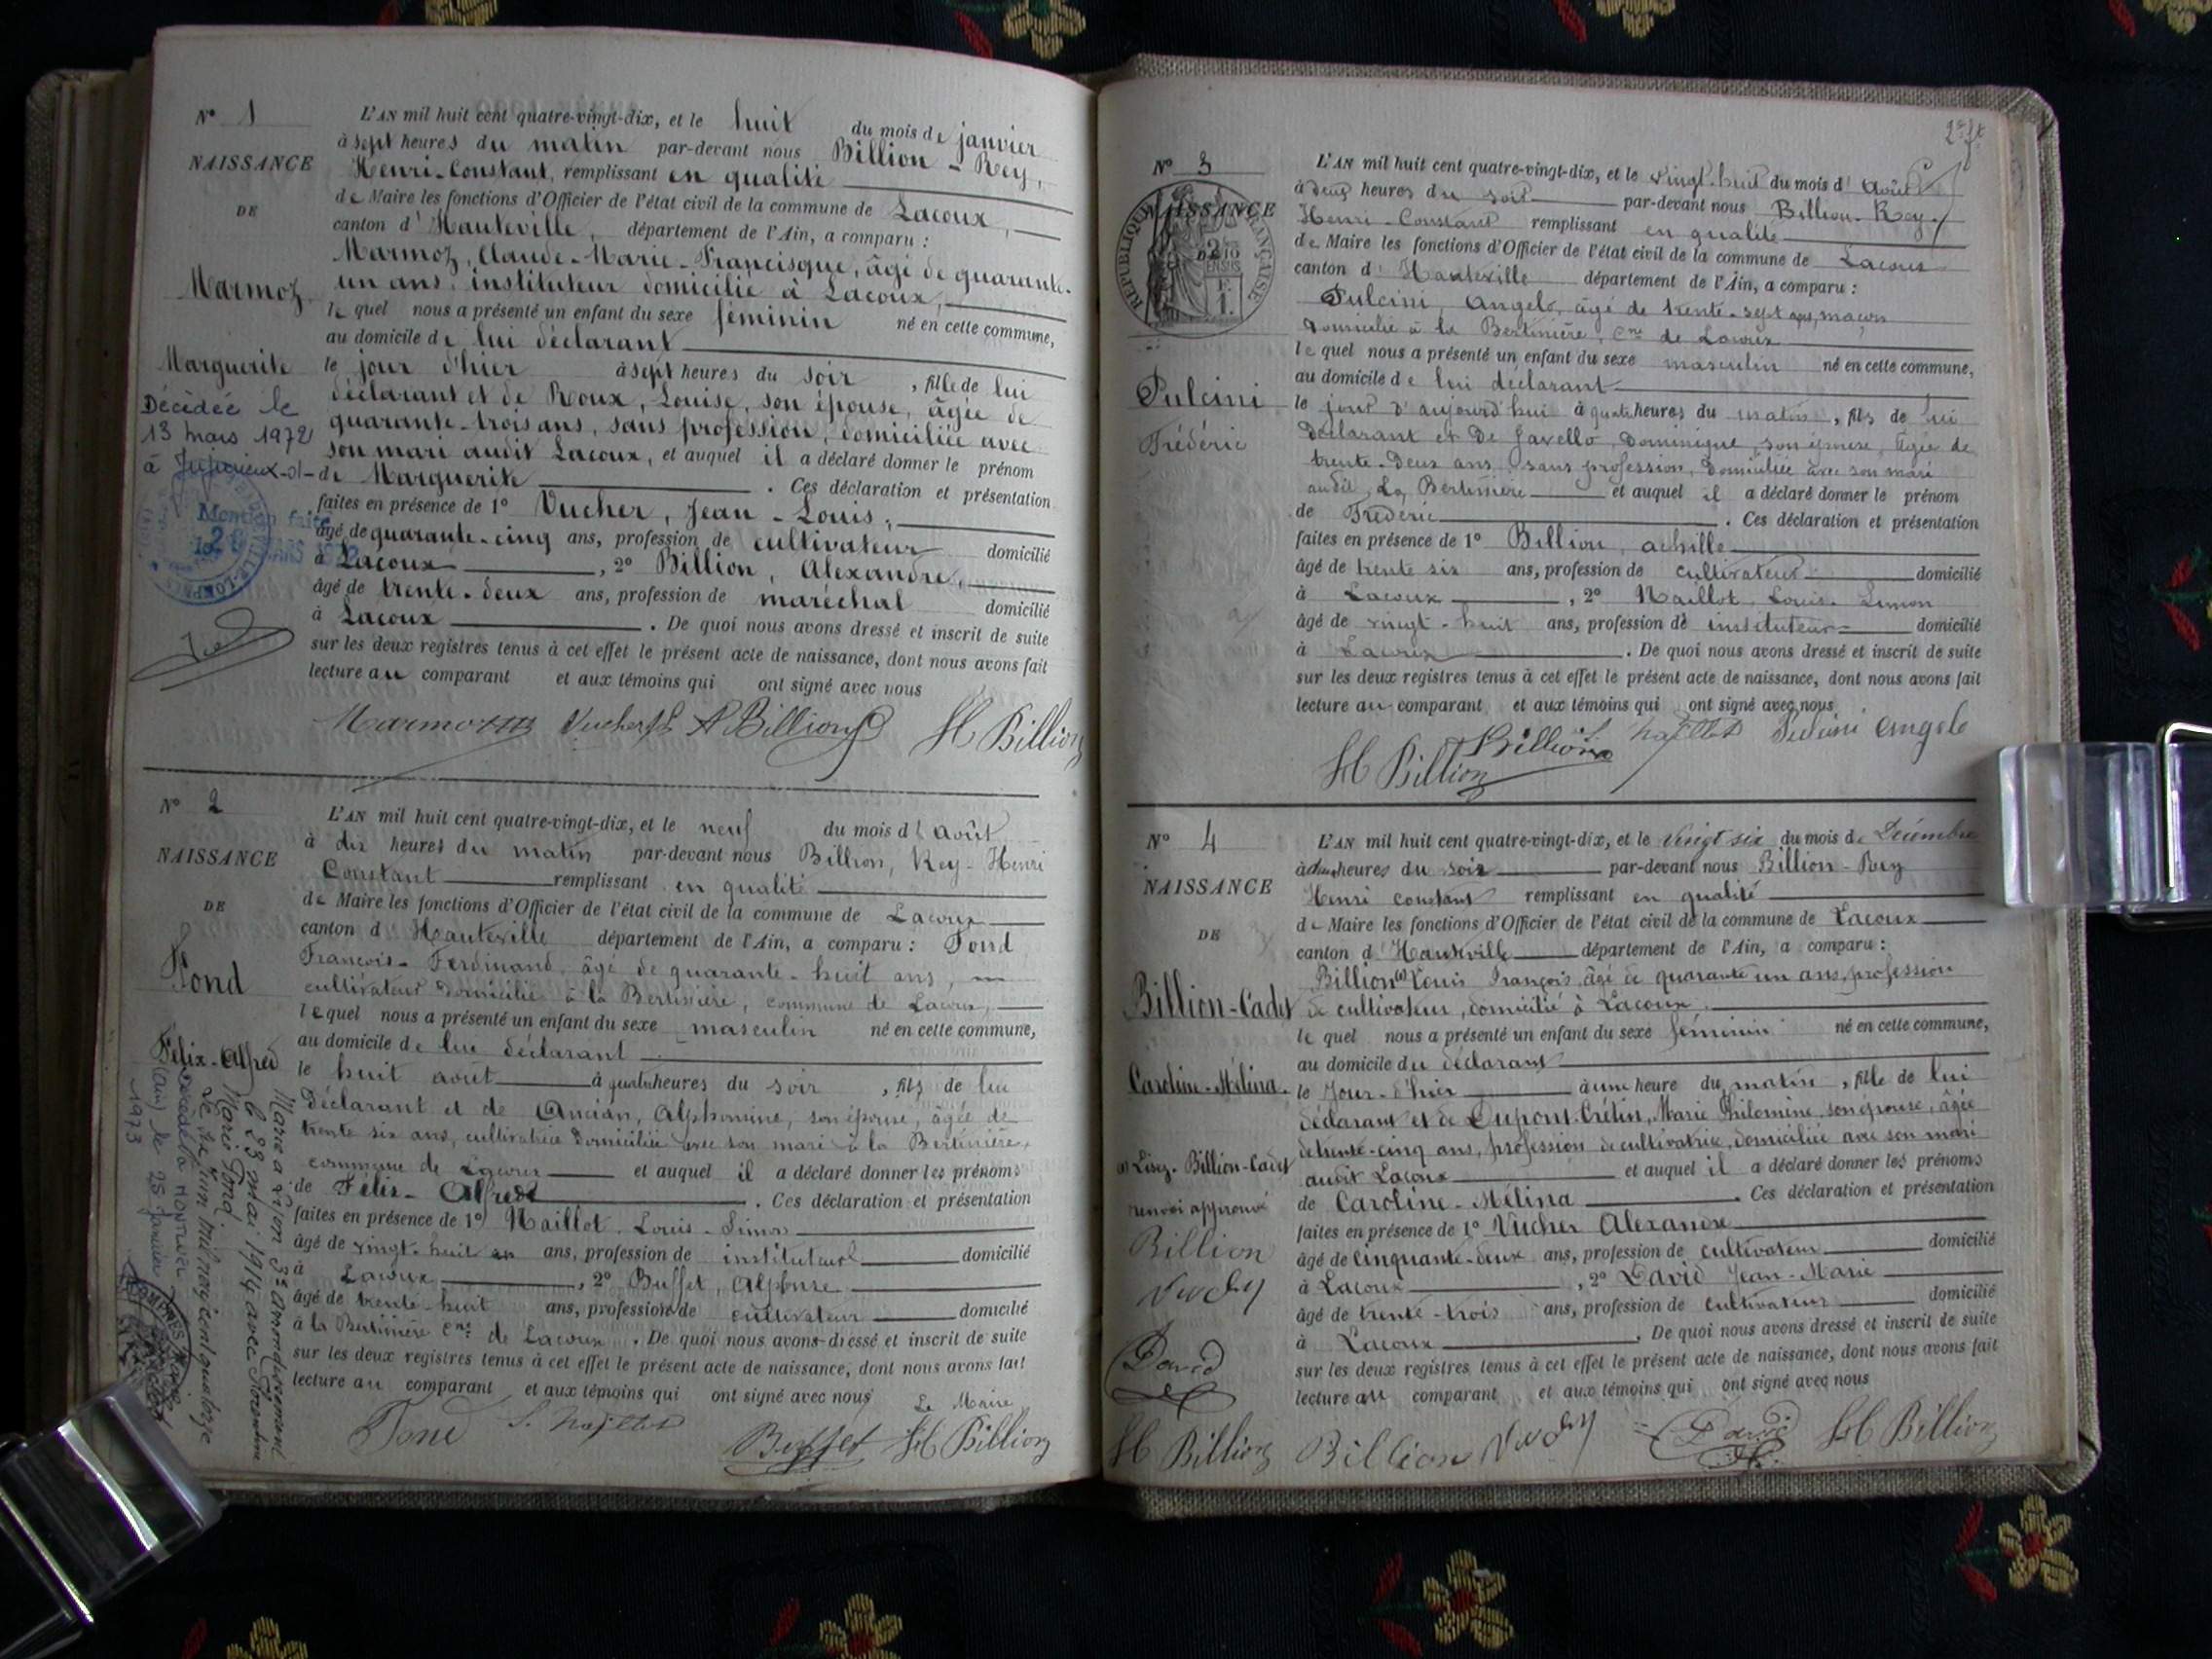 N° 1
NAISSANCE
DE
Marmoz
Marguerite
Décédée le
13 mars 1972
à Jujurieux
L'AN mil huit cent quatre-vingt-dix, et le huit du mois de janvier
à sept heures du matin par-devant nous Billion-Rey,
Henri-Constant, remplissant en qualité
de Maire les fonctions d'Officier de l'état civil de la commune de Lacoux,
canton d'Hauteville, département de l'Ain, a comparu :
Marmoz, Claude-Marie-Francisque, âgé de quarante-
un ans, instituteur domicilié à Lacoux,
lequel nous a présenté un enfant du sexe féminin né en cette commune,
au domicile de lui déclarant
le jour d'hier à sept heures du soir, fille de lui
déclarant et de Roux, Louise, son épouse, âgée de
quarante-trois ans, sans profession, domiciliée avec
son mari audit Lacoux, et auquel il a déclaré donner le prénom
de Marguerite. Ces déclaration et présentation
faites en présence de 1° Vucher, Jean-Louis,
âgé de quarante-cinq ans, profession de cultivateur domicilié
à Lacoux, 2° Billion, Alexandre,
âgé de trente-deux ans, profession de maréchal domicilié
à Lacoux. De quoi nous avons dressé et inscrit de suite
sur les deux registres tenus à cet effet le présent acte de naissance, dont nous avons fait
lecture au comparant et aux témoins qui ont signé avec nous
Marmoz Vucher JL A Billion H Billion
N° 2
NAISSANCE
DE
Fond
Félix-Alfred
Marié à Lyon 3e arrondissement
le 23 mai 1914 avec Florentine
Marie Fond
Le juin mil neuf cent quatorze
Décédé à MONTLUEL
(Ain) le 25 janvier
1973
L'AN mil huit cent quatre-vingt-dix, et le neuf du mois d'août
à dix heures du matin par-devant nous Billion, Rey-Henri
Constant remplissant en qualité
de Maire les fonctions d'Officier de l'état civil de la commune de Lacoux
canton d'Hauteville département de l'Ain, a comparu : Fond
François-Ferdinand, âgé de quarante-huit ans,
cultivateur domicilié à la Bertinière, commune de Lacoux,
lequel nous a présenté un enfant du sexe masculin né en cette commune,
au domicile de lui déclarant
le huit août à quatre heures du soir, fils de lui
déclarant et de Ancian, Alphonsine, son épouse, âgée de
trente six ans, cultivatrice domiciliée avec son mari à la Bertinière,
commune de Lacoux et auquel il a déclaré donner les prénoms
de Félix-Alfred. Ces déclaration et présentation
faites en présence de 1° Naillot Louis-Simon
âgé de vingt-huit ans, profession de instituteur domicilié
à Lacoux, 2° Buffet, Alphonse
âgé de trente-huit ans, profession de cultivateur domicilié
à la Bertinière cne de Lacoux. De quoi nous avons dressé et inscrit de suite
sur les deux registres tenus à cet effet le présent acte de naissance, dont nous avons fait
lecture au comparant et aux témoins qui ont signé avec nous
Le Maire
Fond L. Naillot Buffet H Billion
N° 3
NAISSANCE
RÉPUBLIQUE FRANÇAISE
Pulcini
Frédéric
L'AN mil huit cent quatre-vingt-dix, et le vingt-huit du mois d'août
à deux heures du soir par-devant nous Billion-Rey-
Henri-Constant remplissant en qualité
de Maire les fonctions d'Officier de l'état civil de la commune de Lacoux
canton d'Hauteville département de l'Ain, a comparu :
Pulcini, Angelo, âgé de trente-sept ans, maçon
domicilié à la Bertinière, cne de Lacoux
lequel nous a présenté un enfant du sexe masculin né en cette commune,
au domicile de lui déclarant
le jour d'aujourd'hui à quatre heures du matin, fils de lui
déclarant et de Javello, Dominique, son épouse, âgée de
trente-deux ans, sans profession, domiciliée avec son mari
audit, La Bertinière et auquel il a déclaré donner le prénom
de Frédéric. Ces déclaration et présentation
faites en présence de 1° Billion, achille
âgé de trente six ans, profession de cultivateur domicilié
à Lacoux, 2° Naillot, Louis-Simon
âgé de vingt-huit ans, profession de instituteur domicilié
à Lacoux. De quoi nous avons dressé et inscrit de suite
sur les deux registres tenus à cet effet le présent acte de naissance, dont nous avons fait
lecture au comparant et aux témoins qui ont signé avec nous
H Billion Billion Naillot Pulcini Angelo
N° 4
NAISSANCE
DE
Billion-Cadet
Caroline-Mélina
(1) Lisez-Billion-Cadet
renvoi approuvé
Billion
Vucher
David
H Billion
L'AN mil huit cent quatre-vingt-dix, et le vingt six du mois de Décembre
à deux heures du soir par-devant nous Billion-Rey
Henri constant remplissant en qualité
de Maire les fonctions d'Officier de l'état civil de la commune de Lacoux
canton d'Hauteville département de l'Ain, a comparu :
Billion (1) Louis François, âgé de quarante un ans, profession
de cultivateur, domicilié à Lacoux
lequel nous a présenté un enfant du sexe féminin né en cette commune,
au domicile du déclarant
le Jour-d'hier à une heure du matin, fille de lui
déclarant et de Dupont-Crétin, Marie Philomène, son épouse, âgée
de trente-cinq ans, profession de cultivatrice, domiciliée avec son mari
audit Lacoux et auquel il a déclaré donner les prénoms
de Caroline-Mélina. Ces déclaration et présentation
faites en présence de 1° Vucher Alexandre
âgé de cinquante-deux ans, profession de cultivateur domicilié
à Lacoux, 2° David Jean-Marie
âgé de trente-trois ans, profession de cultivateur domicilié
à Lacoux. De quoi nous avons dressé et inscrit de suite
sur les deux registres tenus à cet effet le présent acte de naissance, dont nous avons fait
lecture au comparant et aux témoins qui ont signé avec nous
Billion Vucher David H Billion